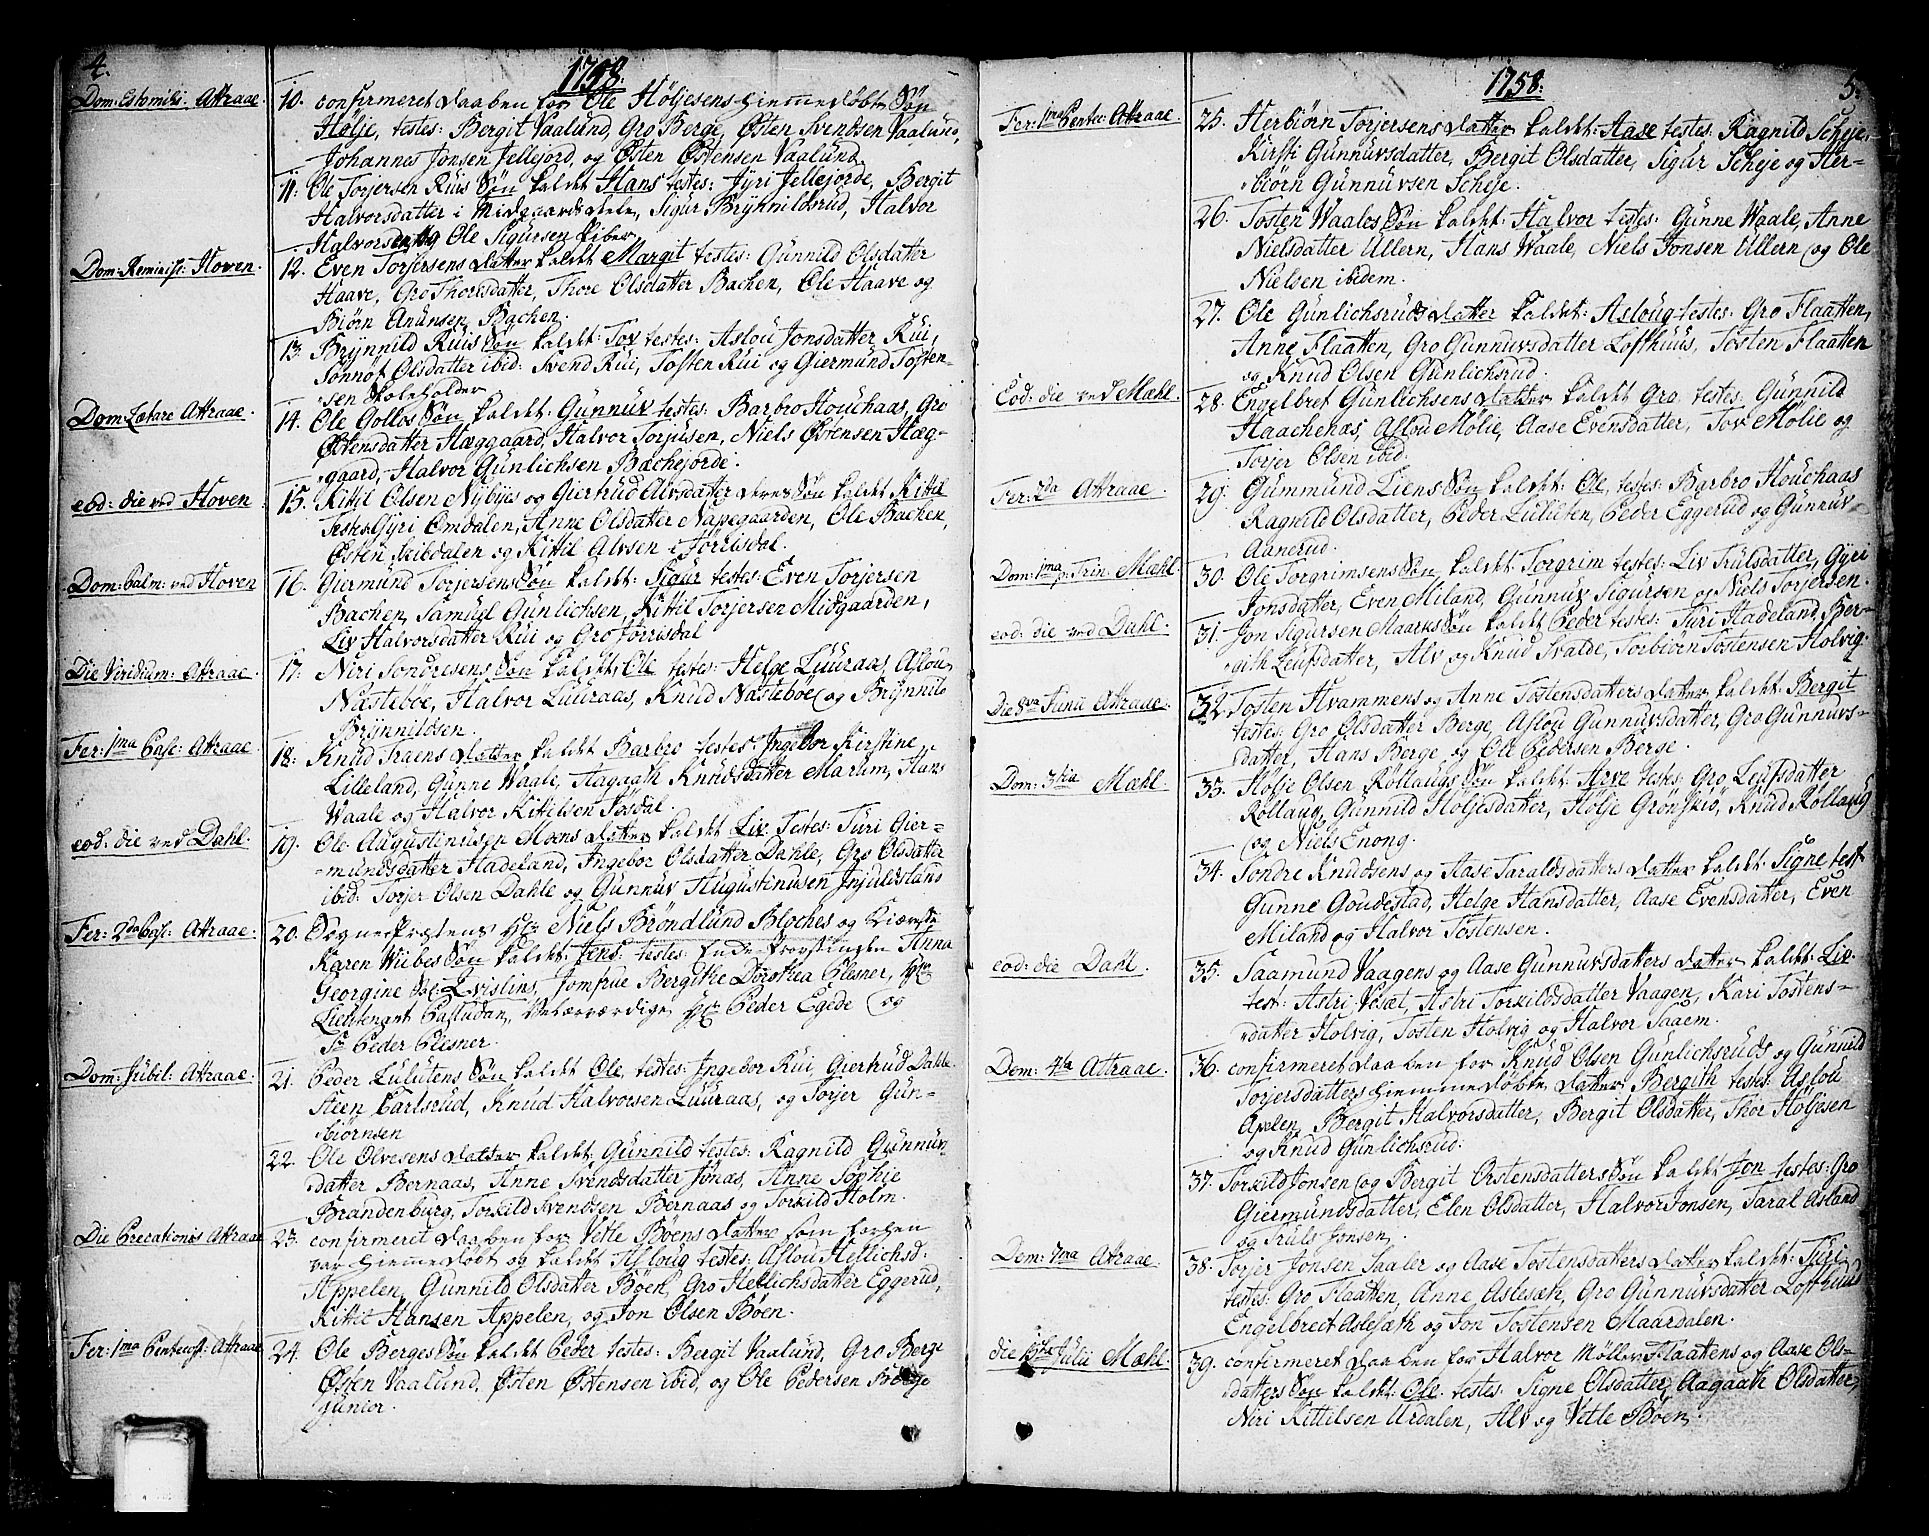 4.
1758.
Dom: Estomihi. Attraae.
10. confirmeret Daaben for Ole Höljesens hiemmedøbte Søn
Hølje, testes: Bergit Vaalund, Gro Berge, Østen Svendsen Vaalund,
Johannes Jonsen Jellejord, og Østen Østensen Vaalund.
11. Ole Torjersen Ruis Søn kaldet Hans testes: Jÿri Jellejorde, Bergit
Halvorsdatter i Midgaardsdele, Sigur Brÿnildsrud, Halvor
Halvorsen og Ole Sigursen
Dom: Reminisc: Hoven.
12. Even Torjersens datter kaldt Margit testes: Gunnild Olsdatter
Haave, Gro Thorisdatter, Thore Olsdatter Bachen, Ole Haave og
Biørn Anunsen Bachen.
13. Brÿnnild Ruis Søn kaldt: Tov testes: Aslou Jonsdatter Rui,
Sonnof Olsdatter ibid: Svend Rui, Tosten Rui og Giermund Tosten-
sen Skoleholder
Dom: Letare Attraae.
14. Ole Gollos Søn kaldt: Gunnuv testes: Barbro Houchaas, Gro
Østensdatter Hæggaard, Halvor Torjusen, Niels Østensen Hæg-
gaard, Halvor Gunlichsen Bachejorde.
eod: die ved Hoven
15. Kittil Olsen Nÿbÿes og Giertrud Alvsdatter deres Søn kaldt Kittil
Testes Gÿri Omdalen, Anne Olsdatter Napegaarden, Ole Bachen,
Østen Skibdalen og Kittil Alvsen i Jörrisdal.
Dom: Palm: ved Hoven
16. Giermund Torjersens Søn kaldt: Sigur testes: Even Torjersen
Bachen, Samuel Gunlichsen, Kittil Torjersen Midgaarden,
Liv Halvorsdatter Rui og Gro Jörrisdal
Die Viridium: Attraae.
17. Niri Sondresens Søn kaldt: Ole testes: Helge Luuraas, Aslou
Næsteböe, Halvor Luuraas, Knud Næsteböe og Brÿnnild
Brÿnnildsen.
Fer: 1ma Pasc: Attraae.
18. Knud Traens datter kaldt Barbro testes: Ingebor Kirstine
Lilleland, Gunne Waale, Aagaath Knudsdatter Marum, Hans
Waale og Halvor Kittilsen Fosdal.
eod: die ved Dahl.
19. Ole Augustinusen Moens datter kaldt Liv. Testes: Turi Gier-
mundsdatter Hadeland, Ingebor Olsdatter Dahle, Gro Olsdatter
ibid: Torjer Olsen Dahle og Gunnuv Augustinusen Jnjuldsland
Fer: 2da Pasc: Attraae.
20. Sogne Præstens Hr Niels Brøndlund Bloches og Kiæreste
Karen Wibes Søn kaldt: Jens: testes: Provstinden Anna
Georgine Sal: Jomfrue Bergithe Dorothea Elesner, Hr
Lieutenant Velærværdige Hr Peder Egede og
Sr Peder Elesner.
Dom: Jubil: Attraae.
21. Peder Lulutens Søn kaldt Ole, testes: Ingebor Rui, Giertrud Dahle
Steen Carlsrud, Knud Halvorsen Luuraas, og Torjer Gun-
biörnsen
22. Ole Olvesens datter kaldt: Gunnild testes: Ragnild Gunnuv
datter Bernaas, Anne Svendsdatter Jönas, Anne Sophie
Brandenburg, Torkild Svendsen Bernaas og Torkild Holm.
Die Precationis Attraae
23. confirmerit Daaben for Vetle Böens datter som forhen
var hiemmedøbt og kaldet Asloug testes: Aslou Hellichsd:
Appelen, Gunnild Olsdatter Böen, Gro Hellichsdatter Eggerud,
Kittel Hansen Appelen, og Jon Olsen Böen.
Fer: 1ma Pentecost: Attraae
24. Ole Berges Søn kaldt Peder testes: Bergit Vaalund, Gro Berge
Østen Vaalund, Østen Østensen ibid, og Ole Pedersen Berge
junior.
1758.
5.
Fer: 1ma Pentec: Attraae.
25. Herbiørn Torjersens datter kaldet: Aase testes: Ragnild Scheje,
Kirsti Gunnuvsdatter, Bergit Olsdatter, Sigur Scheje og Her-
biörn Gunnuvsen Scheje.
26. Tosten Waales Søn kaldet: Halvor testes: Gunne Waale, Anne
Nielsdatter Ullern, Hans Waale, Niels Jonsen Ullern og Ole
Nielsen ibidem.
27. Ole Gunlichsruds datter kaldet: Asloug testes: Gro Flaatten,
Anne Flaatten, Gro Gunnuvsdatter Lofthuus, Tosten Flaatten
og Knud Olsen Gunlichsrud.
Eod: die ved Mæhl.
28. Engelbret Gunlichsens datter kaldet Gro. testes: Gunnild
Haachenæs, Aslou Mølie, Aase Evensdatter, Tov Mølie og
Torjer Olsen ibid.
Fer: 2da Attraae.
29. Gummund Liens Søn kaldt: Ole, testes: Barbro Houchaas
Ragnild Olsdatter, Peder Luluten, Peder Eggerud og Gunnuv
Aanerud.
Dom: 1ma p: Trin. Mæhl.
30. Ole Torgrimsens Søn kaldt Torgrim testes: Liv Trulsdatter, Gÿri
Jonsdatter, Even Miland, Gunnuv Sigursen og Niels Torjersen.
eod: die ved Dahl.
31. Jon Sigursen Maarks Søn kaldt Peder testes: Turi Hadeland, Ber-
gith Leufsdatter, Alv og Knud Svalde, Torbiörn Tostensen Holvig.
Die 8va Junii Attraae.
32. Tosten Hvammens og Anne Tostensdatters datter kaldet: Bergit
testes: Gro Olsdatter Berge, Aslou Gunnuvsdatter, Gro Gunnuvs-
datter, Hans Berge og Ole Pedersen Berge.
Dom: 3tia Mæhl.
33. Holje Olsen Röllaugs Søn kaldt: Arve testes: Gro Leufsdatter
Röllaug, Gunnild Holjesdatter, Hölje Grönskiö, Knud Röllaug
og Niels Enong.
34. Sondre Knudsens og Aase Taraldsdatters datter kaldt: Signe test
Gunne Goudestad, Helge Hansdatter, Aase Evensdatter, Even
Miland og Halvor Tostensen.
eod: die Dahl.
35. Saamund Vaagens og Aase Gunnuvsdatters datter kaldt: Liv.
test: Astri Veset, Astri Torkildsdatter Vaagen, Kari Tostens-
datter Holvig, Tosten Holvig og Halvor Saaem.
Dom: 4ta Attraae.
36. confirmeret Daaben for Knud Olsen Gunlichsruds og Gunnild
Torjersdatters hiemmedøbte datter Bergith testes: Aslou
Apelen, Bergit Halvorsdatter, Bergit Olsdatter, Thor Holjesen
og Knud Gunlichsrud.
37. Torkild Jonsen og Bergit Orstensdatters Søn kaldt Jon testes: Gro
Giermundsdatter, Elen Olsdatter, Halvor Jonsen, Taral Asland
og Truls Jonsen.
Dom: 7ma Attraae.
38. Torjer Jonsen Saaler og Aase Tostensdatters datter kaldet: Turi
testes: Gro Flaatten, Anne Aslesæth, Gro Gunnuvsdatter Lofthuus
Engelbrect Aslesæth og Jon Tostensen Maardalen.
die Julii Mæhl.
39. confirmeret Daaben for Halvor Möller Flaattens og Aase Ols-
datters Søn kaldet Ole. testes: Signe Olsdatter, Aagaath Olsdatter,
Niri Kittilsen Urdalen, Alv og Vetle Böen.